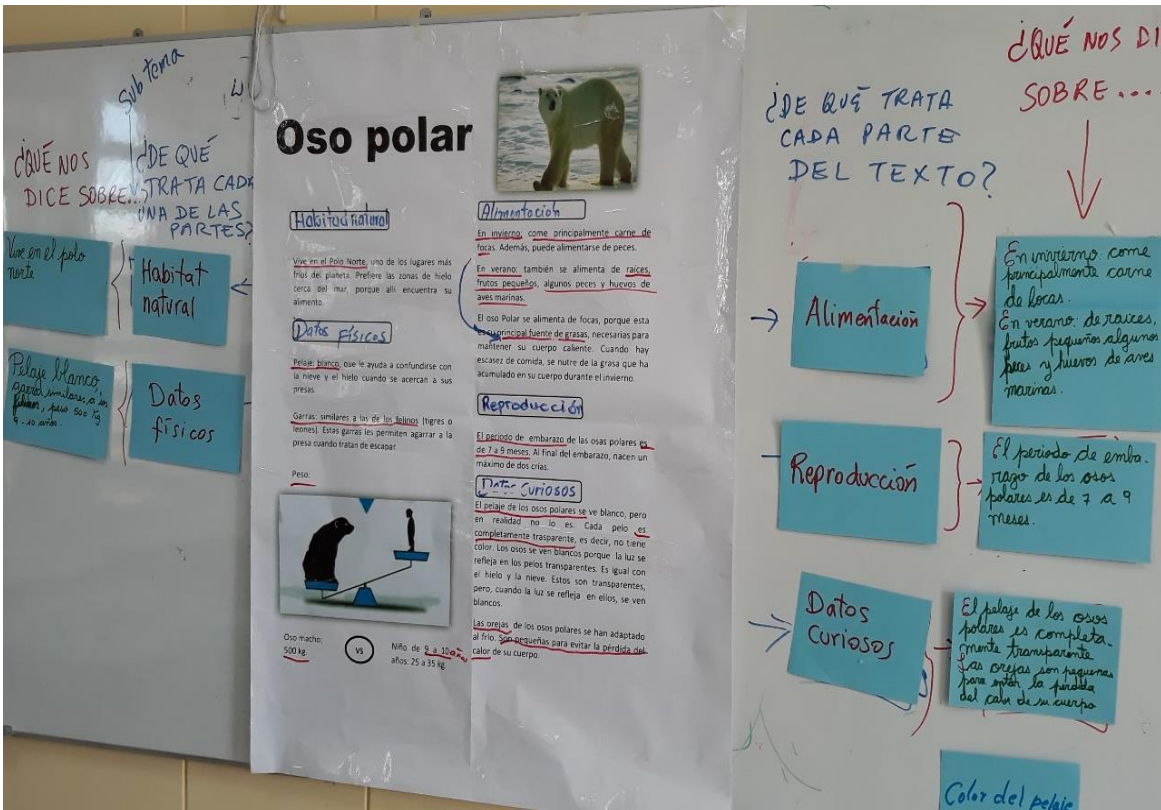 Sub tema
¿QUÉ NOS
DICE SOBRE...
¿DE QUÉ
TRATA CADA
UNA DE LAS
PARTES?
Vive en el polo
norte
Habitat
natural
Pelaje blanco,
garras similares a los
felinos, peso 500 kg
9 - 10 años.
Datos
físicos
Oso polar
Habitad natural
Vive en el Polo Norte, uno de los lugares más
fríos del planeta. Prefiere las zonas de hielo
cerca del mar, porque allí encuentra su
alimento.
Datos Físicos
Pelaje: blanco, que le ayuda a confundirse con
la nieve y el hielo cuando se acercan a sus
presas.
Garras: similares a las de los felinos (tigres o
leones). Estas garras les permiten agarrar a la
presa cuando tratan de escapar.
Peso:
Oso macho:
500 kg.
VS
Niño de 9 a 10 años
años: 25 a 35 kg.
Alimentación
En invierno, come principalmente carne de
focas. Además, puede alimentarse de peces.
En verano: también se alimenta de raíces,
frutos pequeños, algunos peces y huevos de
aves marinas.
El oso Polar se alimenta de focas, porque esta
es su principal fuente de grasas, necesarias para
mantener su cuerpo caliente. Cuando hay
escasez de comida, se nutre de la grasa que ha
acumulado en su cuerpo durante el invierno.
Reproducción
El periodo de embarazo de las osas polares es
de 7 a 9 meses. Al final del embarazo, nacen un
máximo de dos crías.
Datos Curiosos
El pelaje de los osos polares se ve blanco, pero
en realidad no lo es. Cada pelo es
completamente trasparente, es decir, no tiene
color. Los osos se ven blancos porque la luz se
refleja en los pelos transparentes. Es igual con
el hielo y la nieve. Estos son transparentes,
pero, cuando la luz se refleja en ellos, se ven
blancos.
Las orejas de los osos polares se han adaptado
al frío. Son pequeñas para evitar la pérdida del
calor de su cuerpo.
¿DE QUÉ TRATA
CADA PARTE
DEL TEXTO?
¿QUÉ NOS DI
SOBRE...
Alimentación
En invierno: come
principalmente carne
de focas.
En verano: de raices,
frutos pequeños algunos
peces y huevos de aves
marinas.
Reproducción
El periodo de emba-
razo de los osos
polares es de 7 a 9
meses.
Datos
Curiosos
El pelaje de los osos
polares es completa-
mente transparente
Las orejas son pequeñas
para evitar la pérdida
del calor de su cuerpo
Color del pelaje